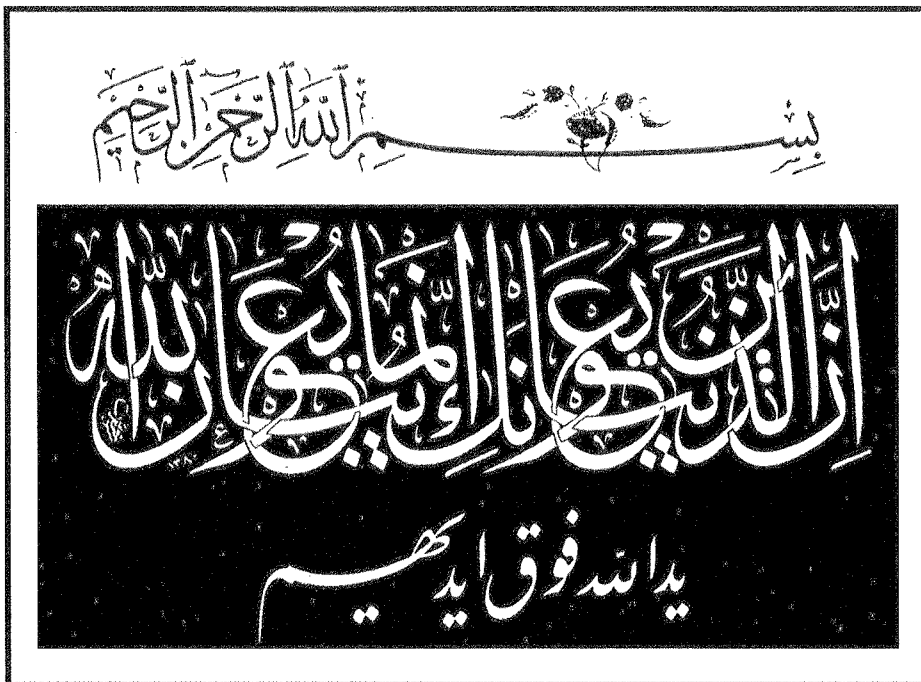 بِسْمِ اللَّهِ الرَّحْمَنِ الرَّحِيمِ
إِنَّ الَّذِينَ يُبَايِعُونَكَ إِنَّمَا يُبَايِعُونَ اللَّهَ
يد الله فوق ايديهم